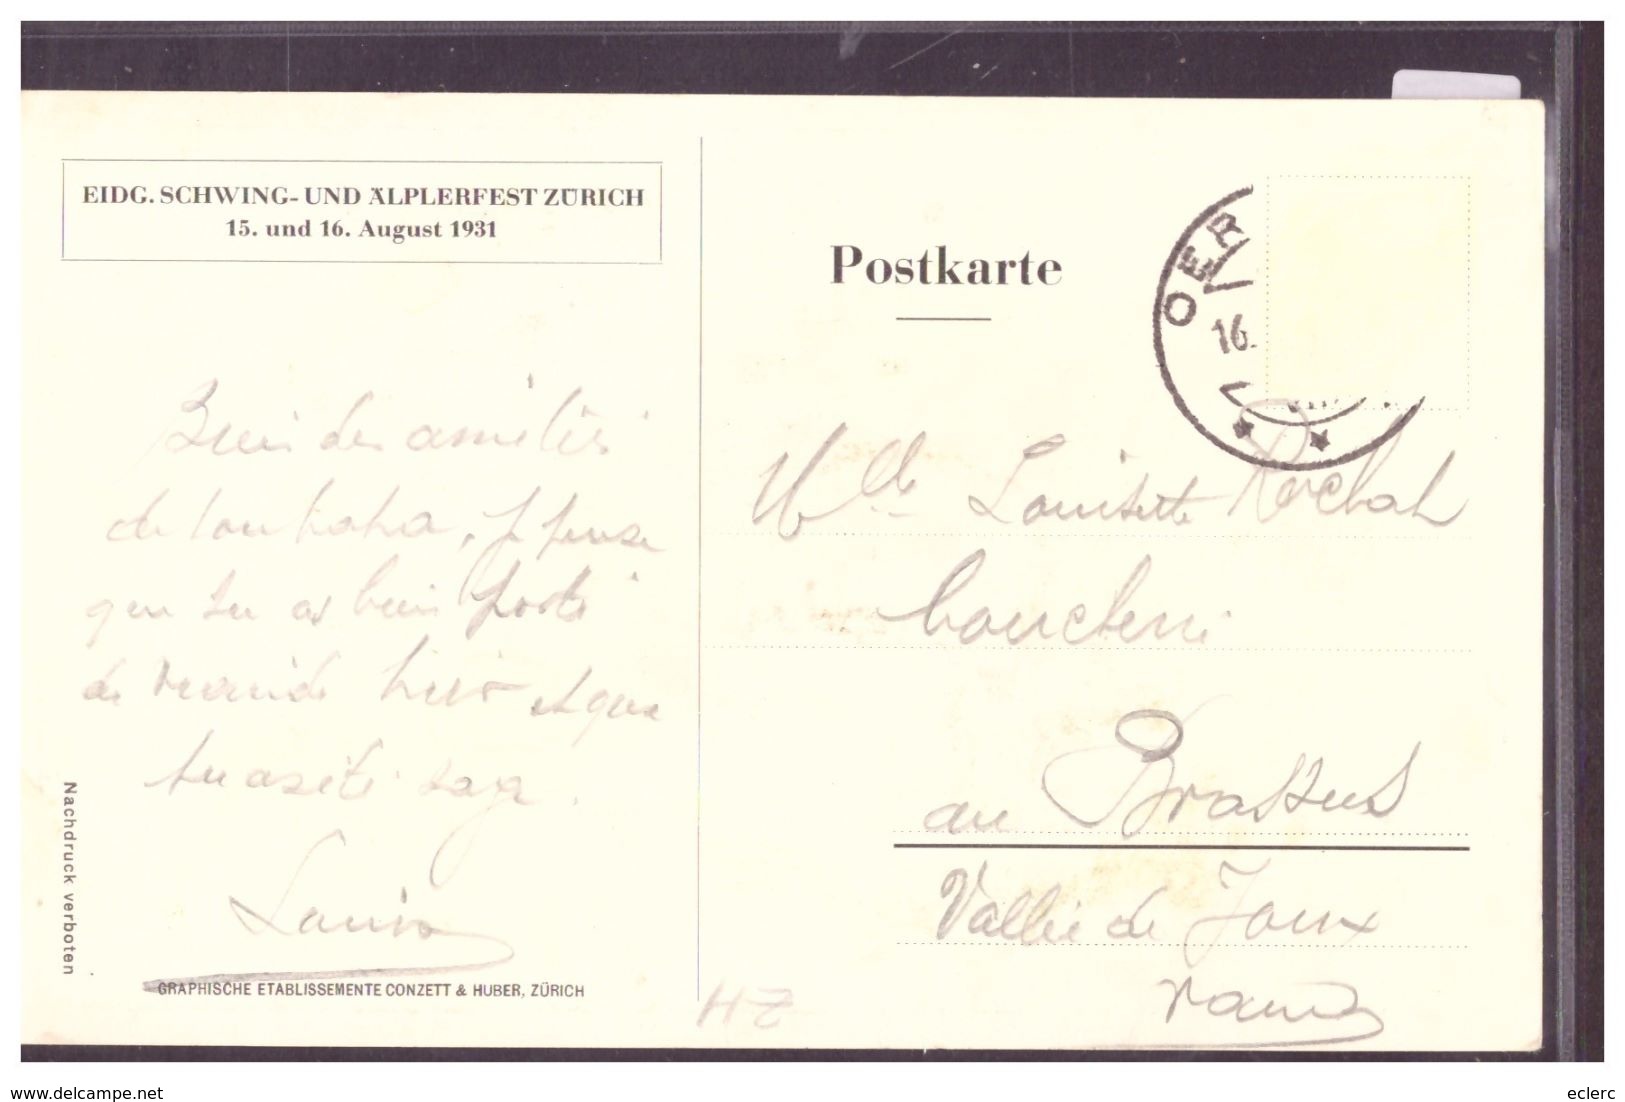 EIDG. SCHWING- UND ÄLPLERFEST ZÜRICH
15. und 16. August 1931
Postkarte
OER
16.
Bien des amitiés
de ton papa, je pense
que tu as bien posté
de viande hier et que
tu as été sage.
Louis
Mlle Louisette Rochat
au Brassus
Vallée de Joux
Vaud
Nachdruck verboten
GRAPHISCHE ETABLISSEMENTE CONZETT & HUBER, ZÜRICH
HZ
www.delcampe.net
eclerc